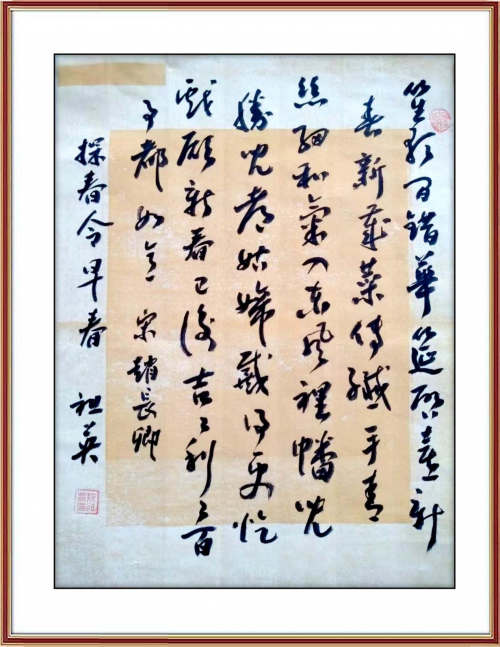 笙歌間錯華筵啓喜新
春新歲菜傳纖手青
絲細和氣入東風裡幡兒
勝兒都姑媂戴得更忔
戲願新春已後吉々利々百
事都如意 宋趙長卿
探春令早春 祖英